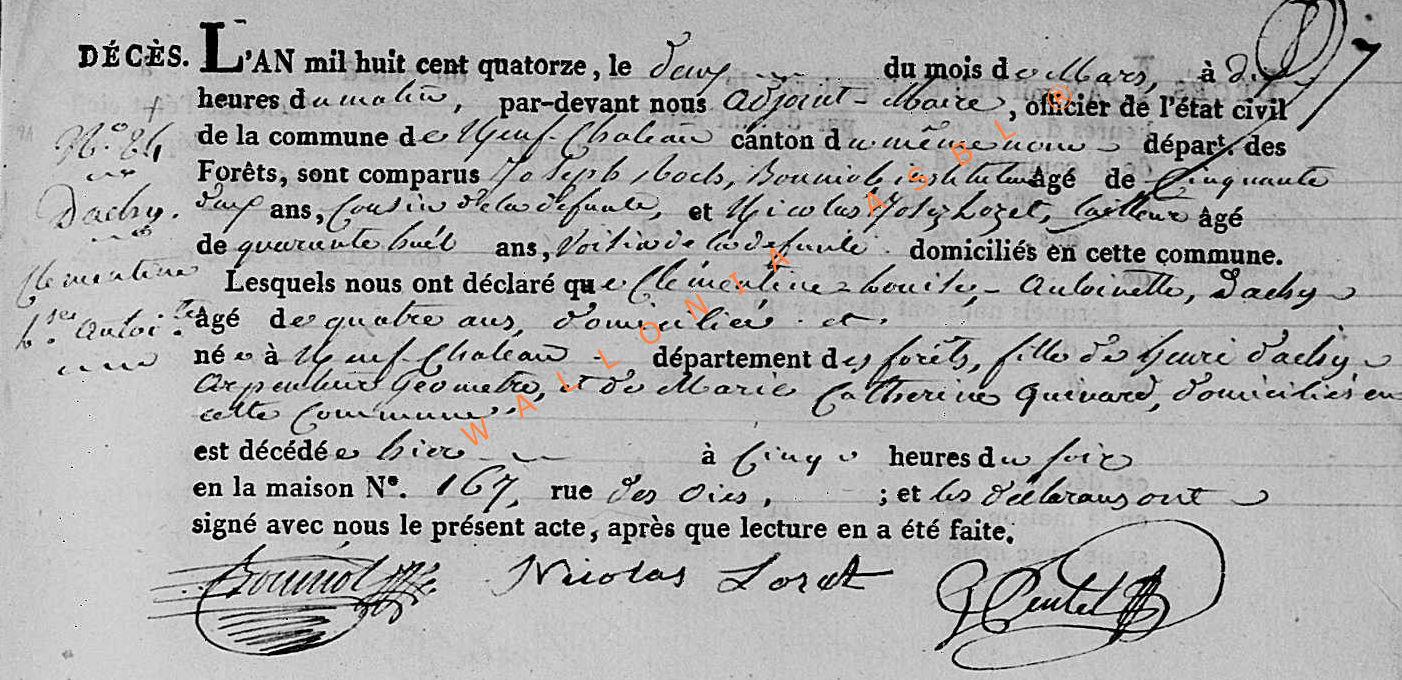 DÉCÈS. L'AN mil huit cent quatorze, le deux du mois de Mars, à dix
heures du matin, par-devant nous adjoint-Maire, officier de l'état civil
de la commune de Neuf-Chateau canton du même nom départ. des
Forêts, sont comparus Joseph Bouniol, instituteur âgé de Cinquante
deux ans, Cousin de la défunte, et Nicolas Lozet, tailleur âgé
de quarante huit ans, Voisin de la défunte. domiciliés en cette commune.
Lesquels nous ont déclaré que Clémentine-Louise-Antoinette, Dachy
âgé de quatre ans, domiciliée et
née à Neuf-Chateau département des forêts, fille de Henri Dachy
Arpenteur Géometre, et de Marie Catherine Quirard, domiciliés en
cette Commune
est décédée hier à Cinq heures du soir
en la maison N°. 167, rue des Oies, ; et les déclarans ont
signé avec nous le présent acte, après que lecture en a été faite.
Bouniol Nicolas Lozet
N° 24
Dachy.
Clementine
Lse Antoi.te
WALLONIA ASBL ®